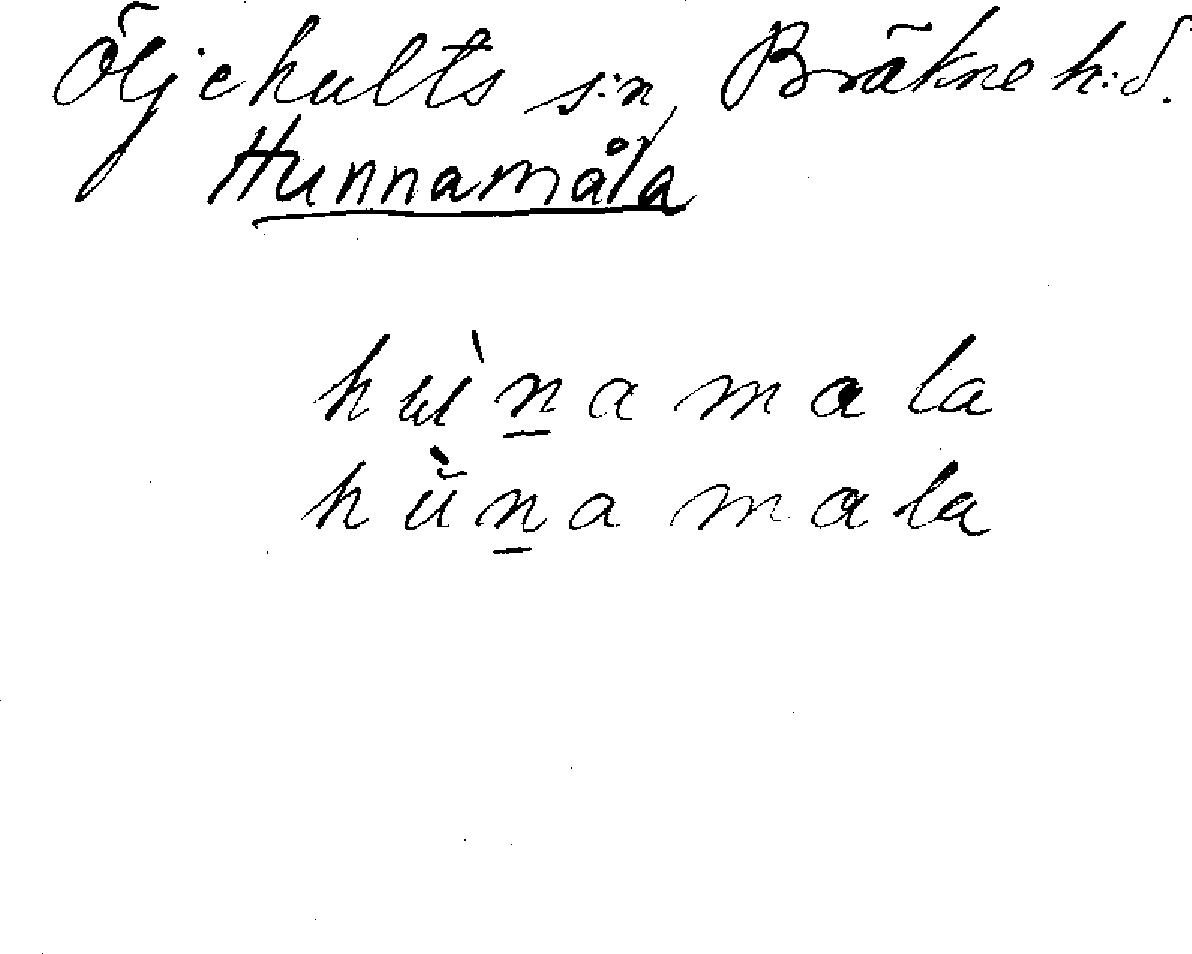 Öljehults s:n, Bräkne h:d.
Hunnamåla
hɯ̀n̲amala
hŭ̀n̲amala